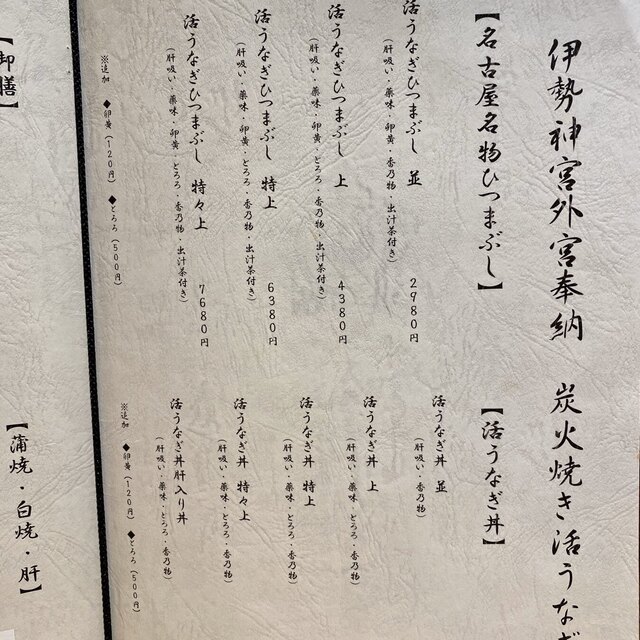 伊勢神宮外宮奉納 炭火焼き活うなぎ
【名古屋名物ひつまぶし】
活うなぎひつまぶし 並 2980円
(肝吸い・薬味・卵黄・香乃物・出汁茶付き)
活うなぎひつまぶし 上 4380円
(肝吸い・薬味・卵黄・とろろ・香乃物・出汁茶付き)
活うなぎひつまぶし 特上 6380円
(肝吸い・薬味・卵黄・とろろ・香乃物・出汁茶付き)
活うなぎひつまぶし 特々上 7680円
(肝吸い・薬味・卵黄・とろろ・香乃物・出汁茶付き)
※追加 ◆卵黄(120円) ◆とろろ(500円)
【活うなぎ丼】
活うなぎ丼 並
(肝吸い・香乃物)
活うなぎ丼 上
(肝吸い・薬味・とろろ・香乃物)
活うなぎ丼 特上
(肝吸い・薬味・とろろ・香乃物)
活うなぎ丼 特々上
(肝吸い・薬味・とろろ・香乃物)
活うなぎ丼肝入り丼
(肝吸い・薬味・とろろ・香乃物)
※追加 ◆卵黄(120円) ◆とろろ(500円)
【御膳】
【蒲焼・白焼・肝】